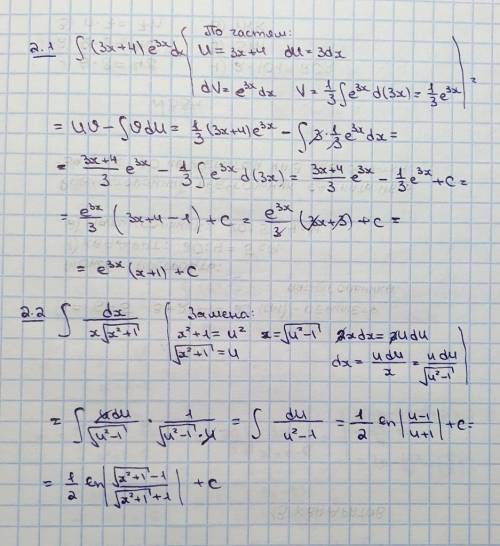 2.1 ∫ (3x+4) e^{3x} dx | По частям:
U = 3x+4 dU = 3dx
dV = e^{3x}dx V = 1/3 ∫e^{3x} d(3x) = 1/3 e^{3x} | =
= UV - ∫VdU = 1/3 (3x+4)e^{3x} - ∫3·1/3 e^{3x}dx =
= (3x+4)/3 e^{3x} - 1/3 ∫ e^{3x} d(3x) = (3x+4)/3 e^{3x} - 1/3 e^{3x} + C =
= e^{3x}/3 (3x+4-1) + C = e^{3x}/3 (3x+3) + C =
= e^{3x}(x+1) + C
2.2 ∫ dx/(x√(x²+1)) | Замена:
x²+1 = u² x = √(u²-1) 2xdx = 2udu
√(x²+1) = u dx = udu/x = udu/√(u²-1) |
= ∫ udu/√(u²-1) · 1/(√(u²-1)·u) = ∫ du/(u²-1) = 1/2 ln|(u-1)/(u+1)| + C =
= 1/2 ln|(√(x²+1)-1)/(√(x²+1)+1)| + C